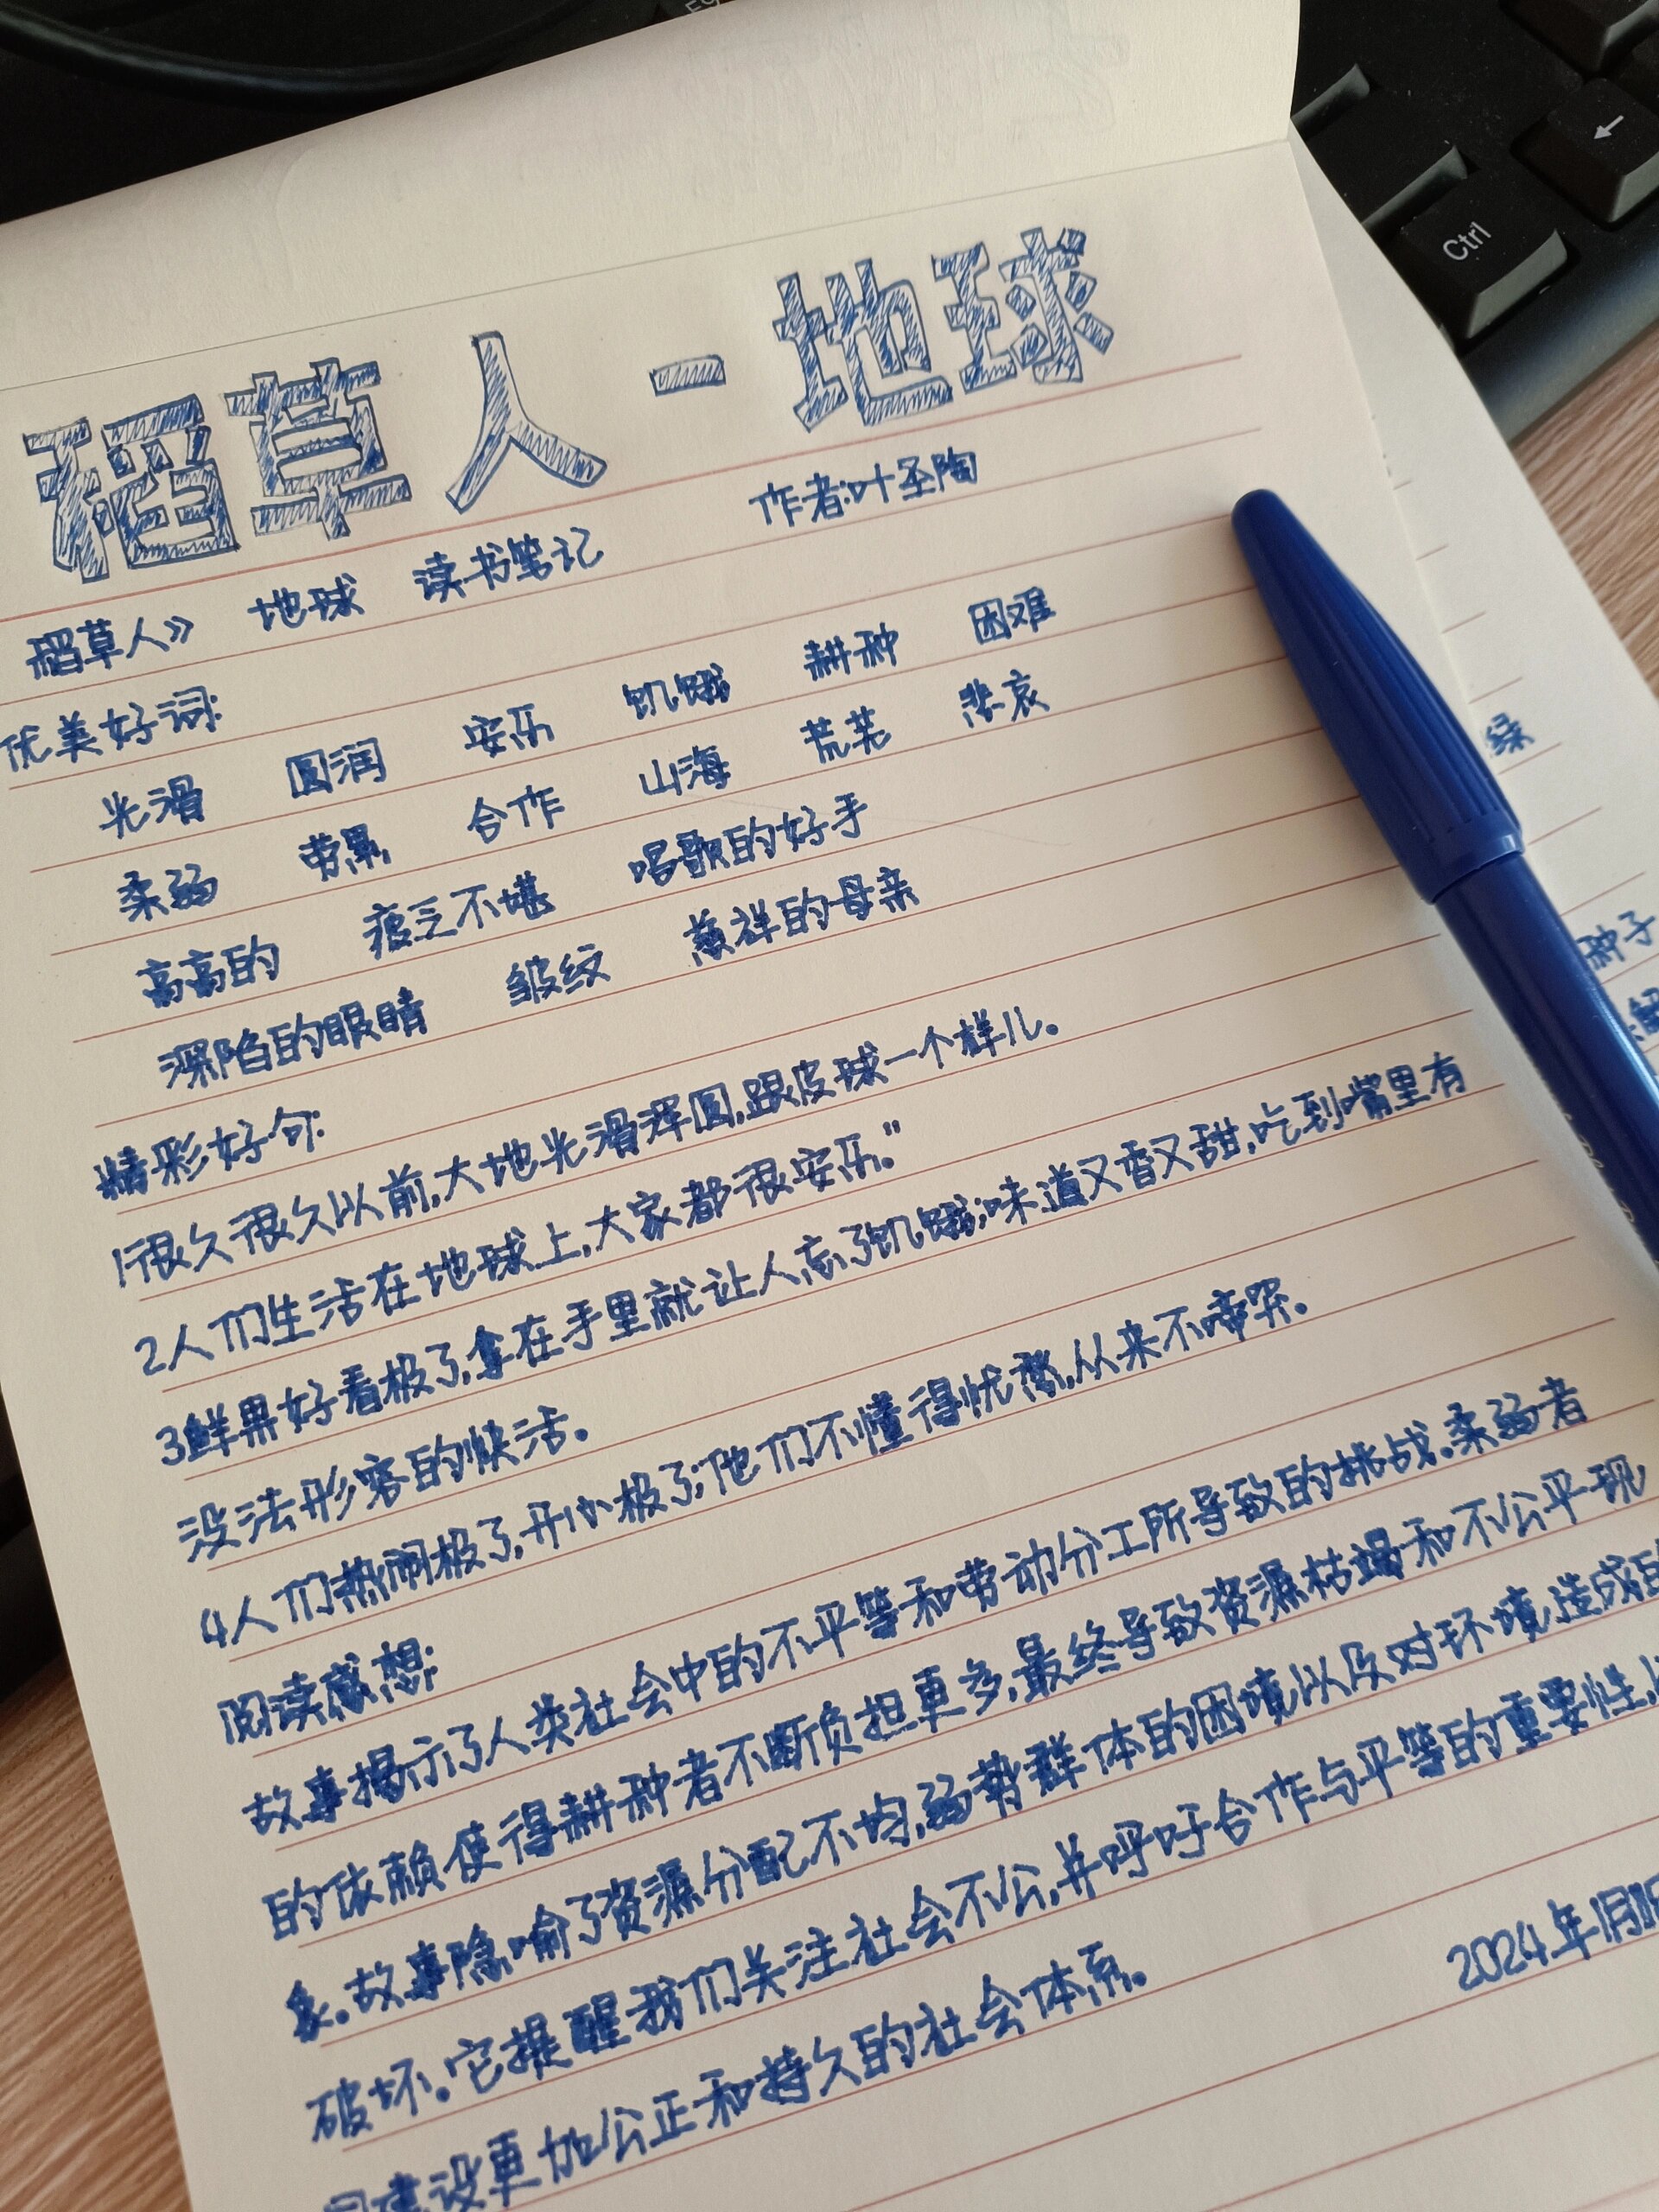 稻草人-地球
作者:叶圣陶
稻草人》 地球 读书笔记
优美好词:
光滑 圆润 安乐 饥饿 耕种 困难
柔弱 劳累 合作 山海 荒芜 悲哀
高高的 疲乏不堪 唱歌的好手
深陷的眼睛 皱纹 慈祥的母亲
精彩好句:
1很久很久以前,大地光滑浑圆,跟皮球一个样儿。
2人们生活在地球上,大家都很安乐。"
3鲜果好看极了,拿在手里就让人忘了饥饿;味道又香又甜,吃到嘴里有
没法形容的快活。
4人们热闹极了,开心极了;他们不懂得忧愁,从来不啼哭。
阅读感想:
故事揭示了人类社会中的不平等和劳动分工所导致的挑战。柔弱者
的依赖使得耕种者不断负担更多,最终导致资源枯竭和不公平现
象。故事隐喻了资源分配不均,弱势群体的困境以及对环境造成的
破坏。它提醒我们关注社会不公,并呼吁合作与平等的重要性,
建设更加公正和持久的社会体系。
2024年1月1日
Ctrl
绿
种子